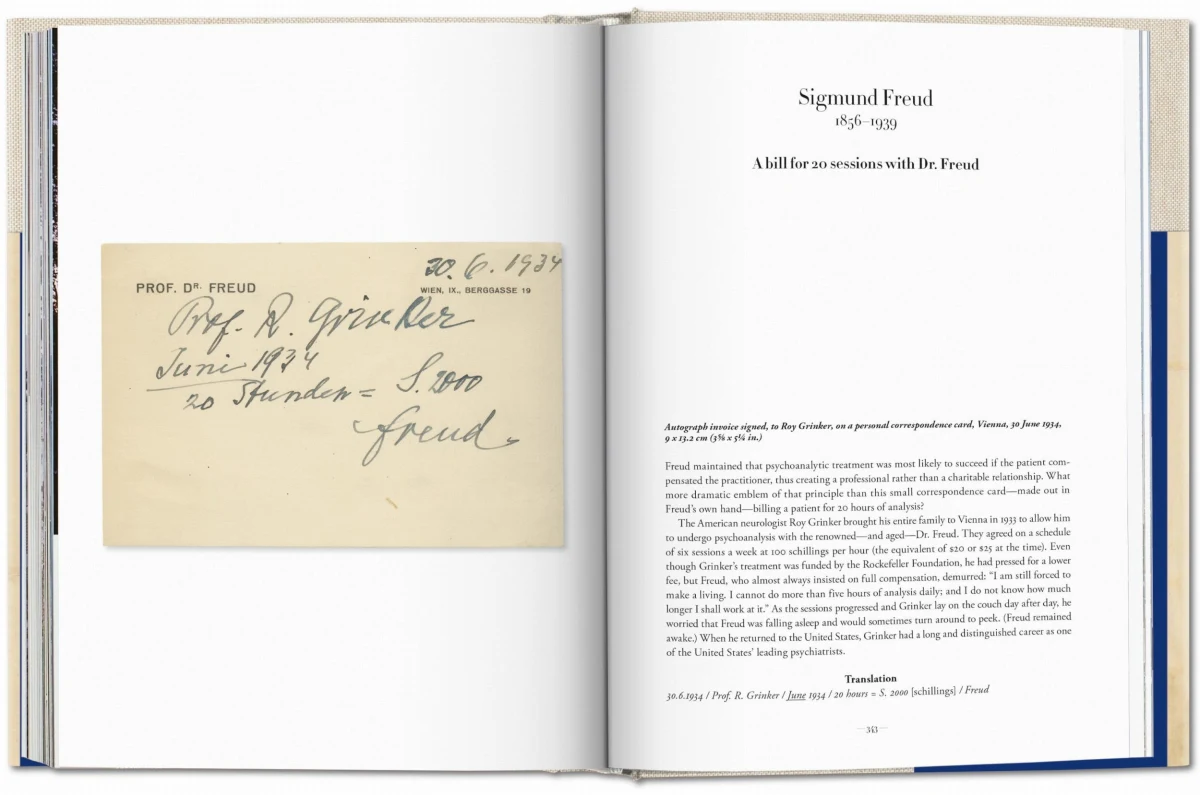 30. 6. 1934
PROF. DR. FREUD
WIEN, IX., BERGGASSE 19
Prof. R. Grinker
Juni 1934
20 Stunden = S. 2000
Freud
Sigmund Freud
1856–1939
A bill for 20 sessions with Dr. Freud
Autograph invoice signed, to Roy Grinker, on a personal correspondence card, Vienna, 30 June 1934,
9 x 13.2 cm (3⅝ x 5¼ in.)
Freud maintained that psychoanalytic treatment was most likely to succeed if the patient com-
pensated the practitioner, thus creating a professional rather than a charitable relationship. What
more dramatic emblem of that principle than this small correspondence card—made out in
Freud's own hand—billing a patient for 20 hours of analysis?
The American neurologist Roy Grinker brought his entire family to Vienna in 1933 to allow him
to undergo psychoanalysis with the renowned—and aged—Dr. Freud. They agreed on a schedule
of six sessions a week at 100 schillings per hour (the equivalent of $20 or $25 at the time). Even
though Grinker's treatment was funded by the Rockefeller Foundation, he had pressed for a lower
fee, but Freud, who almost always insisted on full compensation, demurred: "I am still forced to
make a living. I cannot do more than five hours of analysis daily; and I do not know how much
longer I shall work at it." As the sessions progressed and Grinker lay on the couch day after day, he
worried that Freud was falling asleep and would sometimes turn around to peek. (Freud remained
awake.) When he returned to the United States, Grinker had a long and distinguished career as one
of the United States' leading psychiatrists.
Translation
30.6.1934 / Prof. R. Grinker / June 1934 / 20 hours = S. 2000 [schillings] / Freud
— 343 —